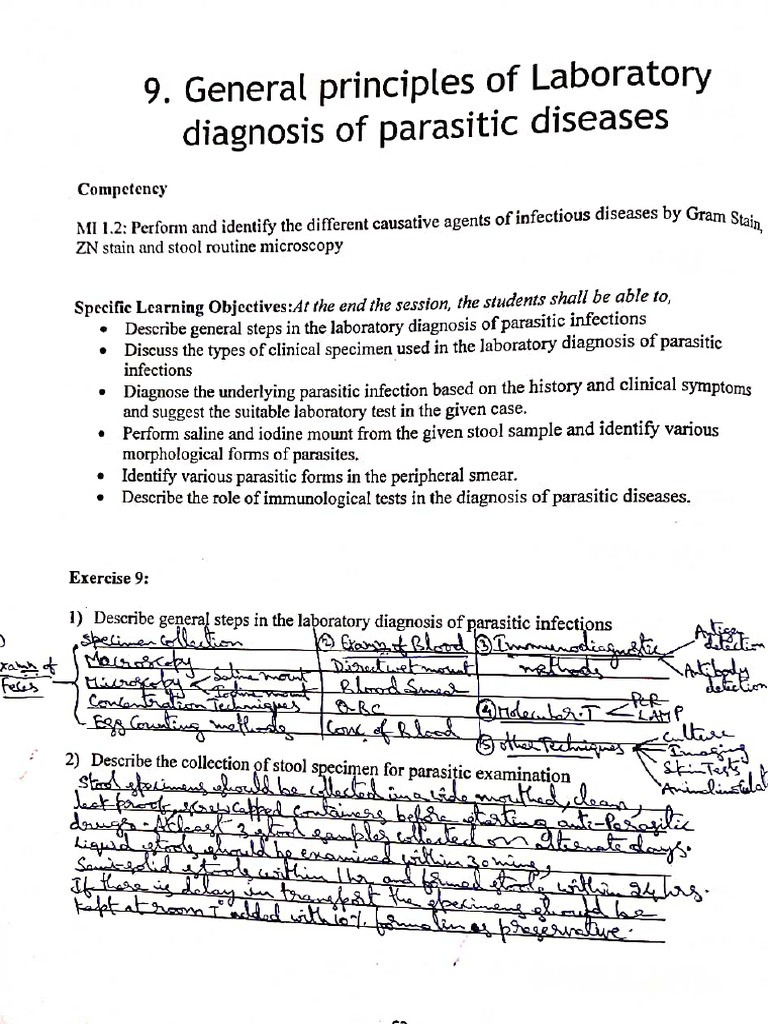 9. General principles of Laboratory
diagnosis of parasitic diseases
Competency
MI 1.2: Perform and identify the different causative agents of infectious diseases by Gram Stain,
ZN stain and stool routine microscopy
Specific Learning Objectives:At the end the session, the students shall be able to,
• Describe general steps in the laboratory diagnosis of parasitic infections
• Discuss the types of clinical specimen used in the laboratory diagnosis of parasitic
infections
• Diagnose the underlying parasitic infection based on the history and clinical symptoms
and suggest the suitable laboratory test in the given case.
• Perform saline and iodine mount from the given stool sample and identify various
morphological forms of parasites.
• Identify various parasitic forms in the peripheral smear.
• Describe the role of immunological tests in the diagnosis of parasitic diseases.
Exercise 9:
1) Describe general steps in the laboratory diagnosis of parasitic infections
Exam of
Feces
Specimen Collection
Macroscopy
Microscopy
Saline mount
Iodine mount
Concentration Techniques
Egg Counting methods
② Exam of Blood
Direct wet mount
Blood Smear
QBC
Conc of Blood
③ Immunodiagnostic
methods
Antigen
detection
Antibody
detection
④ Molecular.T
PCR
LAMP
⑤ Other Techniques
Culture
Imaging
Skin Tests
2) Describe the collection of stool specimen for parasitic examination
Stool specimens should be collected in a wide mouthed, clean,
leak proof, screw capped containers before starting anti-Parasitic
drugs - Atleast 3 stool samples collected on alternate days.
Liquid stools should be examined within 30 mins,
Semi-solid stools within 1 hr and formed stools within 24 hrs.
If there is delay in transport the specimens should be
kept at room T° added with 10% formalin as preservative.